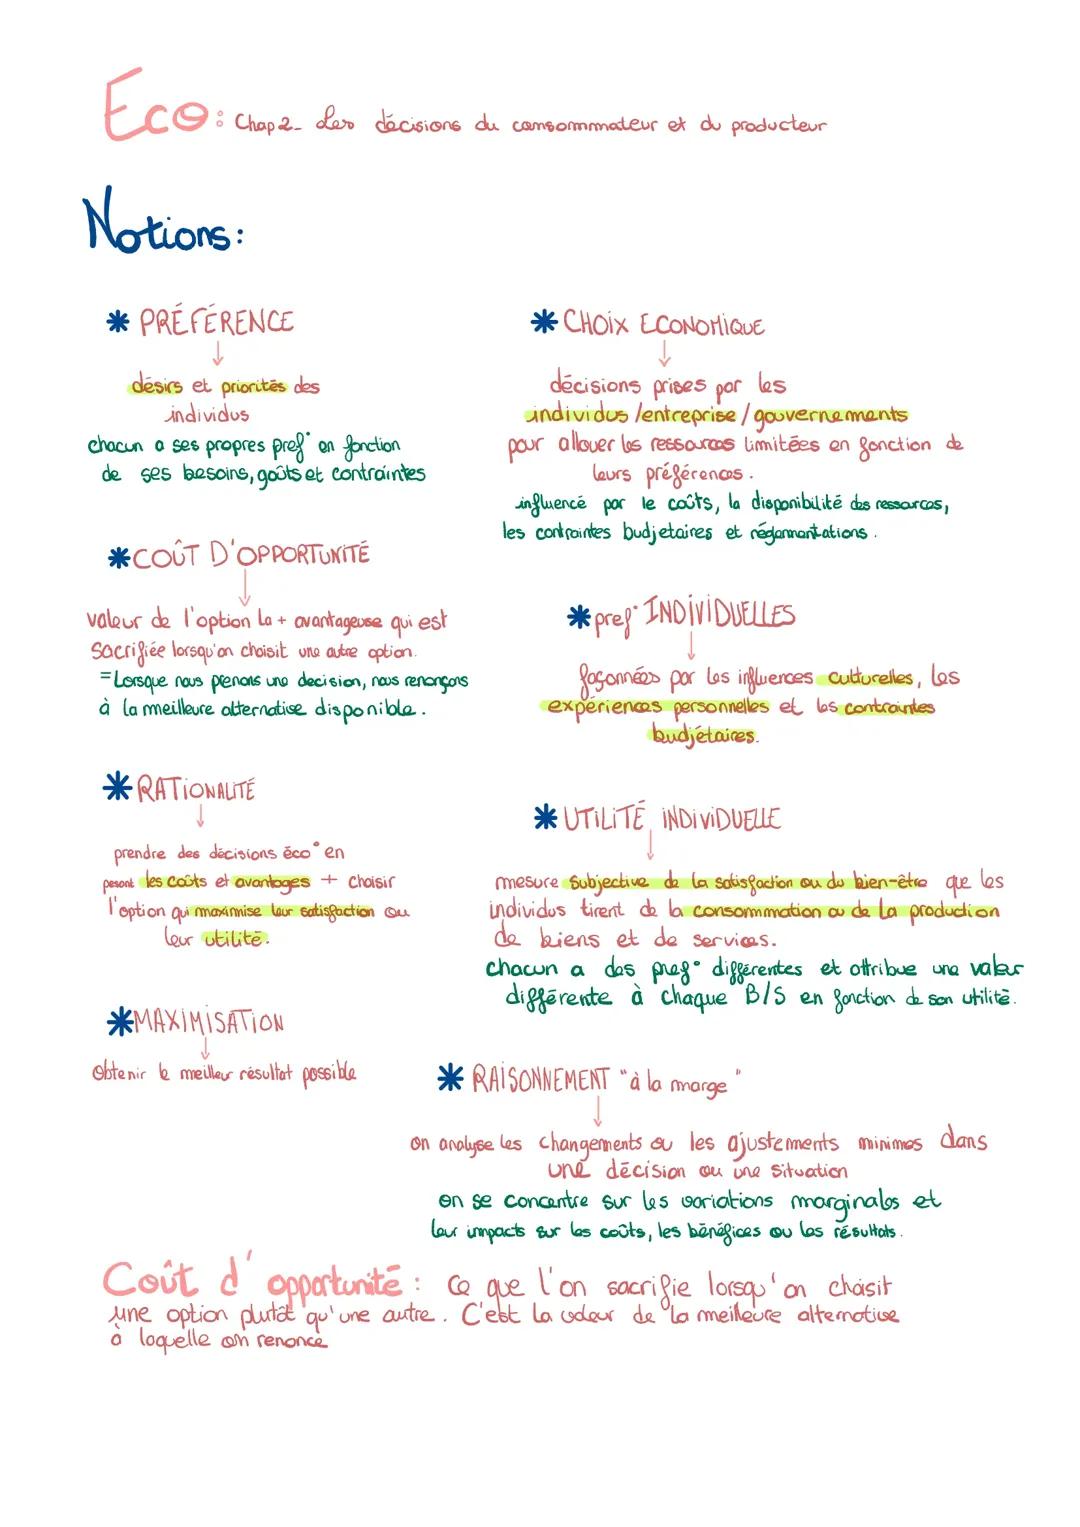 Eco: Chap 2_ Les décisions du consommateur et du producteur
Notions:
* PRÉFÉRENCE
désirs et priorités des
individus
chacun a ses propres pref° en fonction
de ses besoins, goûts et contraintes
* COÛT D'OPPORTUNITÉ
valeur de l'option la + avantageuse qui est
sacrifiée lorsqu'on choisit une autre option.
= Lorsque nous prenons une decision, nous renonçons
à la meilleure alternative disponible.
* RATIONALITÉ
prendre des décisions éco° en
pesant les coûts et avantages + choisir
l'option qui maximise leur satisfaction ou
leur utilité.
* MAXIMISATION
obtenir le meilleur résultat possible
* CHOIX ECONOMIQUE
décisions prises par les
individus / entreprise / gouvernements
pour allouer les ressources limitées en fonction de
leurs préférences.
influencé par le coûts, la disponibilité des ressources,
les contraintes budjetaires et réglementations.
* pref° INDIVIDUELLES
façonnées par les influences culturelles, les
expériences personnelles et les contraintes
budjétaires.
* UTILITÉ INDIVIDUELLE
mesure subjective de la satisfaction ou du bien-être que les
individus tirent de la consommation ou de la production
de biens et de services.
chacun a des pref° différentes et attribue une valeur
différente à chaque B/S en fonction de son utilité.
* RAISONNEMENT "à la marge"
on analyse les changements ou les ajustements minimes dans
une décision ou une situation
on se concentre sur les variations marginales et
leur impacts sur les coûts, les bénéfices ou les résultats.
Coût d'opportunité: Ce que l'on sacrifie lorsqu'on choisit
une option plutôt qu'une autre. C'est la valeur de la meilleure alternative
à laquelle on renonce